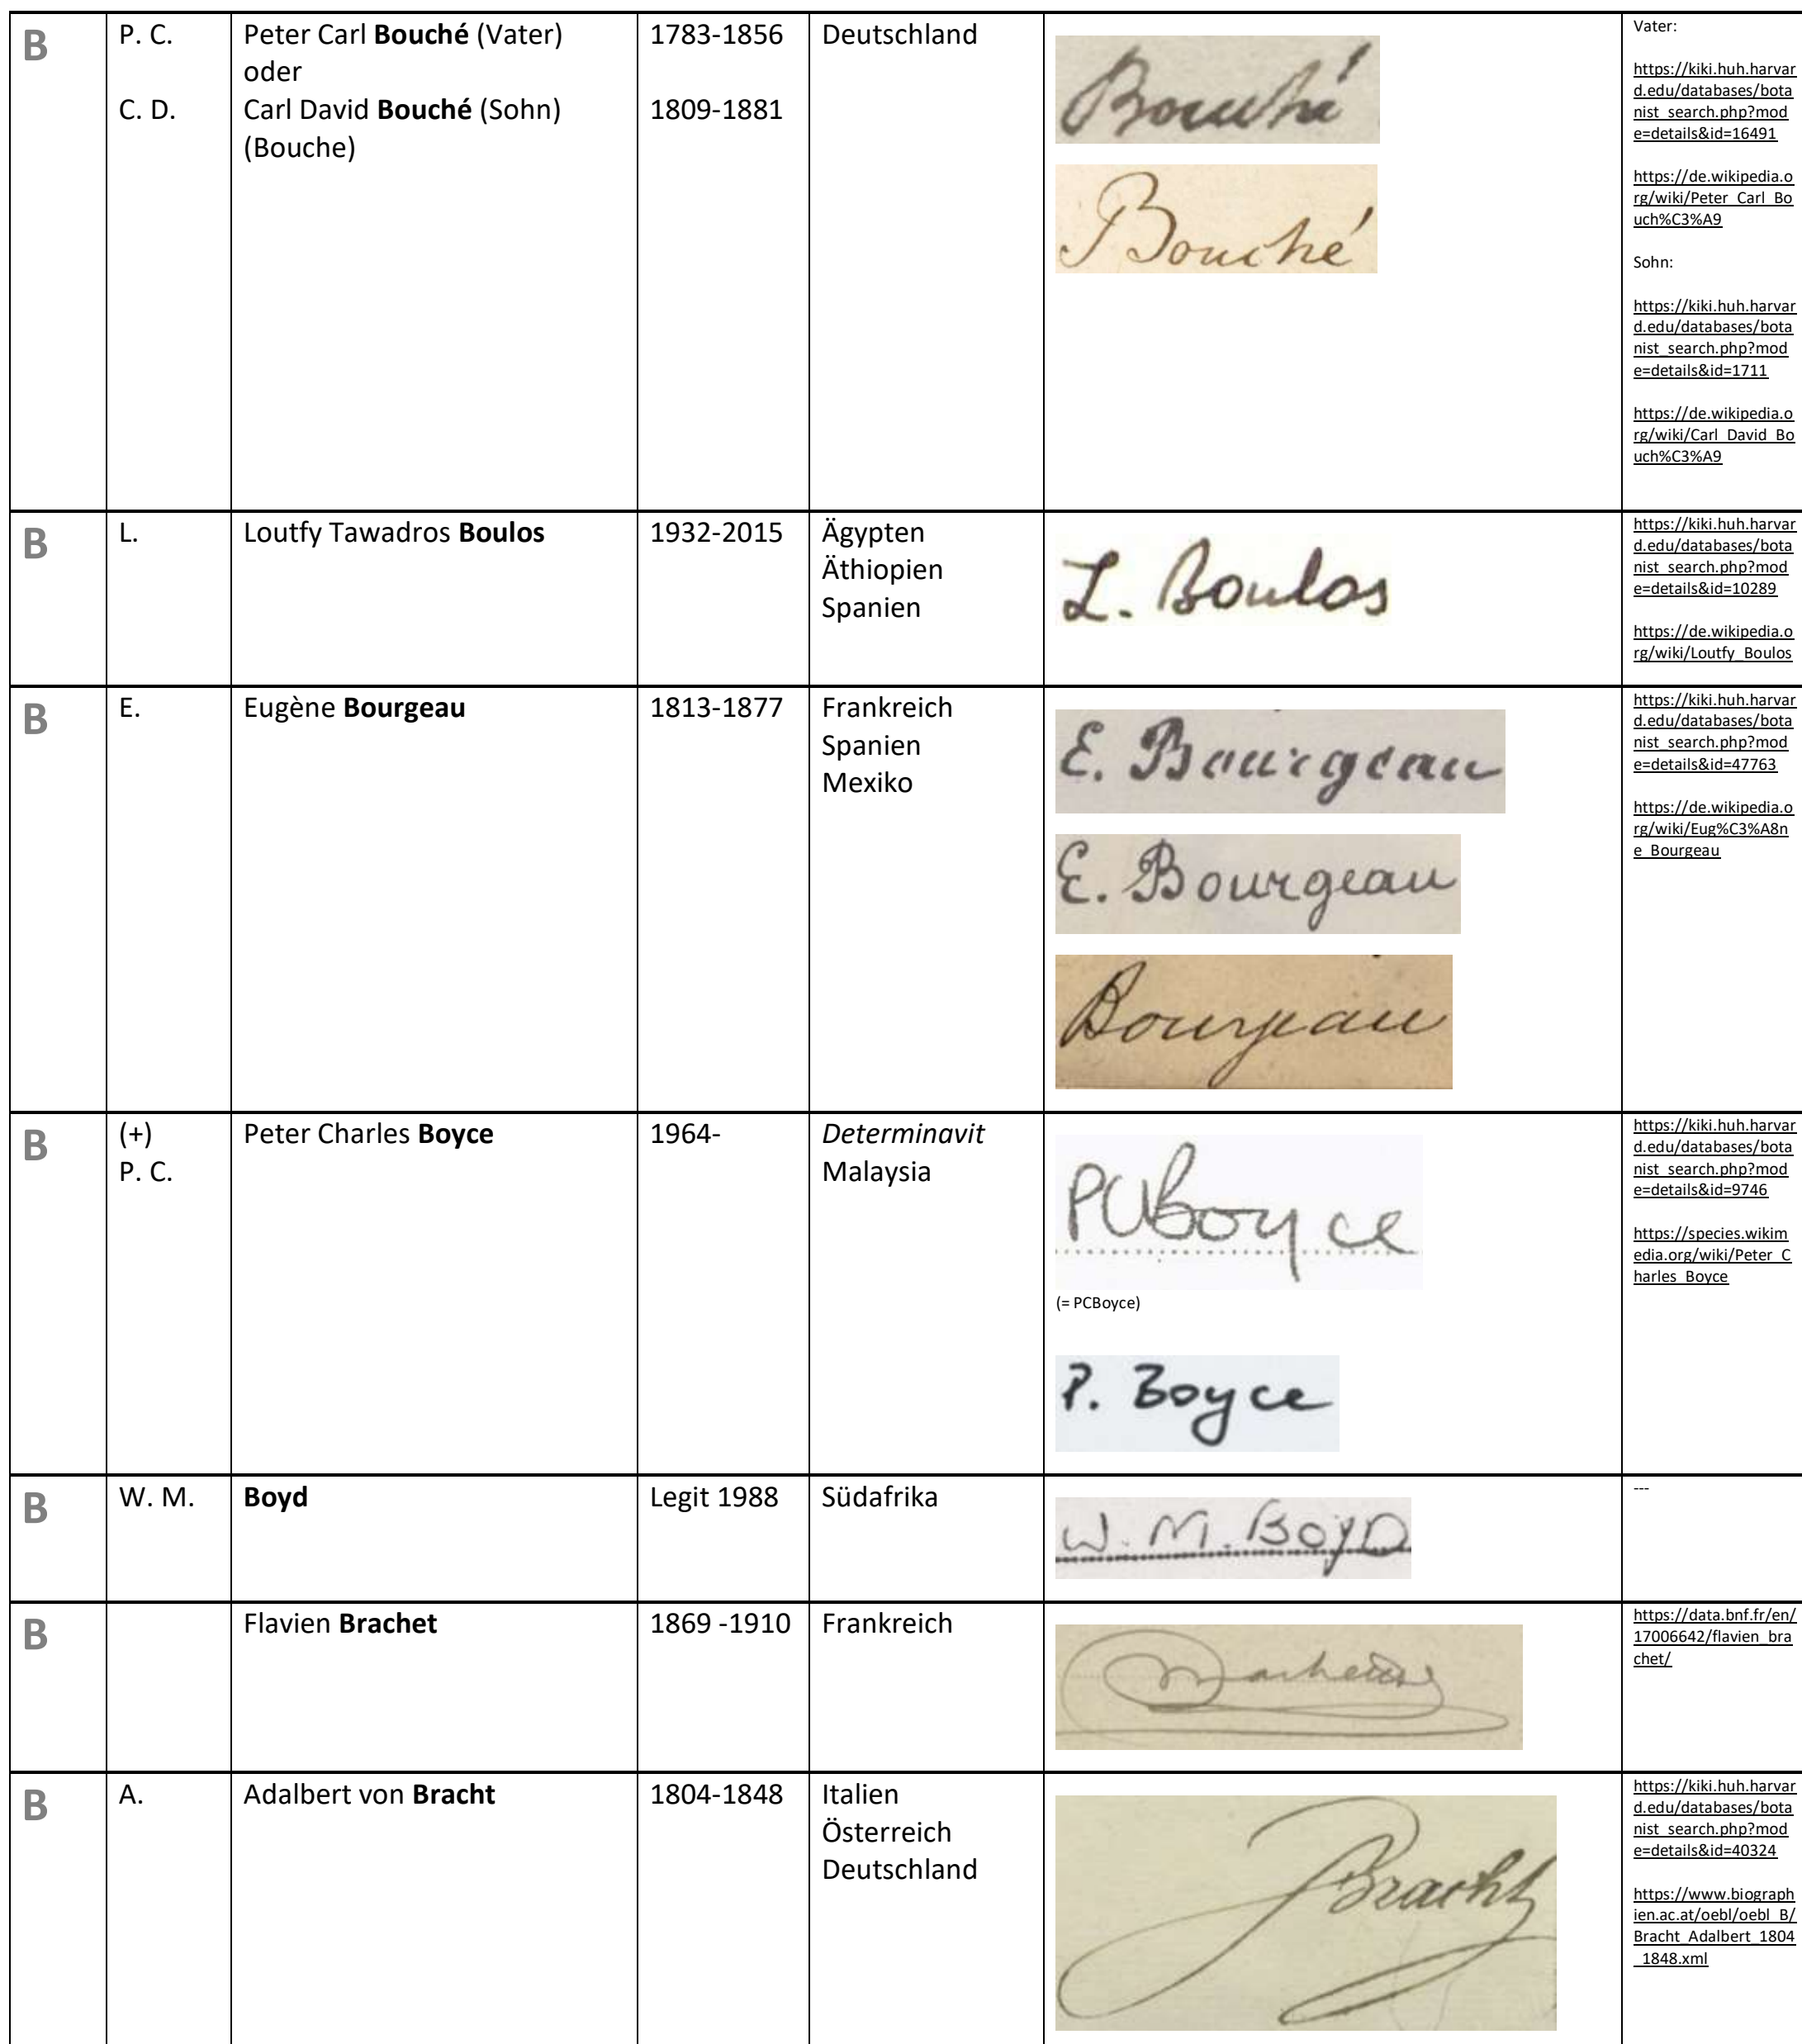 B
P. C.
C. D.
Peter Carl Bouché (Vater)
oder
Carl David Bouché (Sohn)
(Bouche)
1783-1856
1809-1881
Deutschland
Bouché
Bouché
Vater:
https://kiki.huh.harvar
d.edu/databases/bota
nist_search.php?mod
e=details&id=16491
https://de.wikipedia.o
rg/wiki/Peter_Carl_Bo
uch%C3%A9
Sohn:
https://kiki.huh.harvar
d.edu/databases/bota
nist_search.php?mod
e=details&id=1711
https://de.wikipedia.o
rg/wiki/Carl_David_Bo
uch%C3%A9
B
L.
Loutfy Tawadros Boulos
1932-2015
Ägypten
Äthiopien
Spanien
L. Boulos
https://kiki.huh.harvar
d.edu/databases/bota
nist_search.php?mod
e=details&id=10289
https://de.wikipedia.o
rg/wiki/Loutfy_Boulos
B
E.
Eugène Bourgeau
1813-1877
Frankreich
Spanien
Mexiko
E. Bourgeau
E. Bourgeau
Bourgeau
https://kiki.huh.harvar
d.edu/databases/bota
nist_search.php?mod
e=details&id=47763
https://de.wikipedia.o
rg/wiki/Eug%C3%A8n
e_Bourgeau
B
(+)
P. C.
Peter Charles Boyce
1964-
Determinavit
Malaysia
PCBoyce
(= PCBoyce)
P. Boyce
https://kiki.huh.harvar
d.edu/databases/bota
nist_search.php?mod
e=details&id=9746
https://species.wikim
edia.org/wiki/Peter_C
harles_Boyce
B
W. M.
Boyd
Legit 1988
Südafrika
W. M. BoyD
---
B
Flavien Brachet
1869 -1910
Frankreich
https://data.bnf.fr/en/
17006642/flavien_bra
chet/
B
A.
Adalbert von Bracht
1804-1848
Italien
Österreich
Deutschland
Bracht
https://kiki.huh.harvar
d.edu/databases/bota
nist_search.php?mod
e=details&id=40324
https://www.biograph
ien.ac.at/oebl/oebl_B/
Bracht_Adalbert_1804
_1848.xml